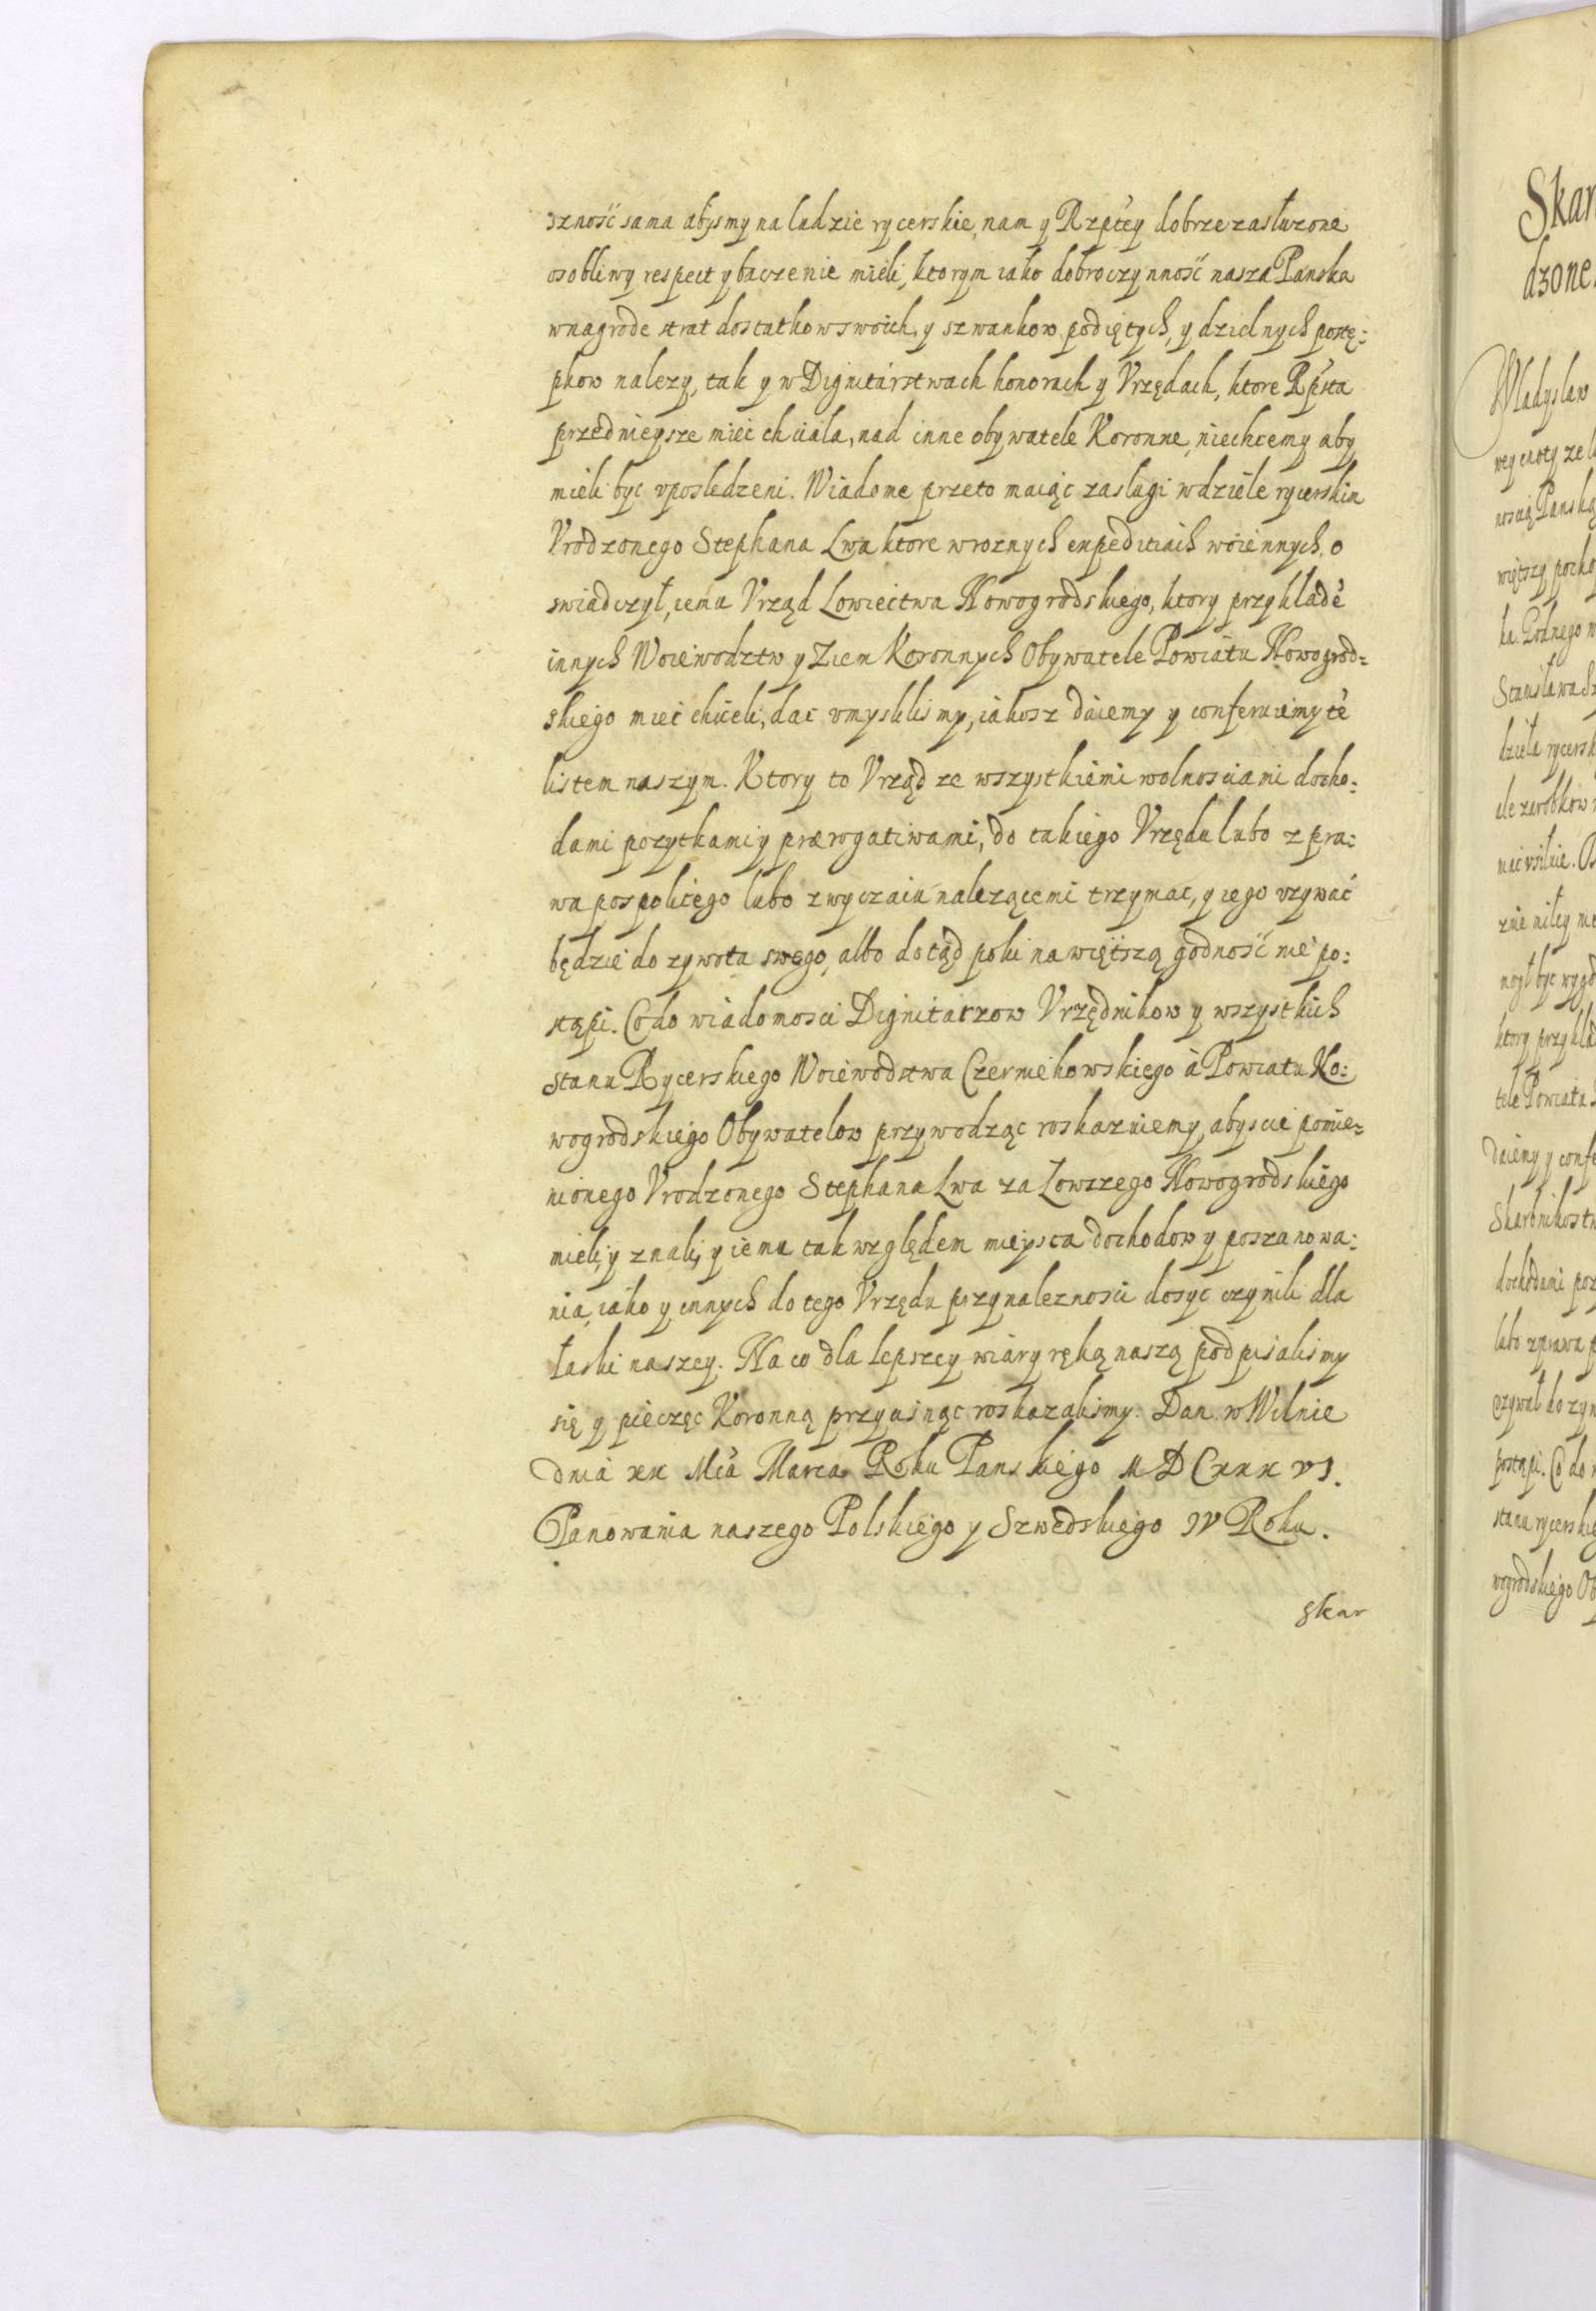 sznosć sama abysmy na ludzie rycerskie, nam y Rzptey dobrze zasłuzone
osobliwy respect y baczenie mieli, ktorym iako dobroczynność nasza Panska
w nagrode strat dostatkow swoich, y szwankow podiętych, y dzielnych postę:
pkow nalezy, tak y w Dignitarstwach honorach y Vrzędach, ktore Rpsta
przednieysze miec chciala, nad inne obywatele Koronne, niechcemy aby
mieli byc vposledzeni. Wiadome przeto maiąc zaslugi w dziele rycerskim
Vrodzonego Stephana Lwa ktore w roznych expeditiach woiennych, o
swiadczył, iemu Vrząd Lowiectwa Nowogrodskiego, ktory przyklade
innych Woiewodztw y Ziem Koronnych Obywatele Powiatu Nowogrod=
skiego miec chcieli, dac vmyslilismy, iakosz daiemy y conferuiemy te
listem naszym. Ktory to Vrząd ze wszystkiemi wolnosciami docho:
dami pozytkami y prærogatiwami, do takiego Vrzędu lubo z pra:
wa pospolitego lubo zwyczaiu nalezącemi trzymac, y iego vzywać
będzie do zywota swego, albo dotąd poki na więtszą godność nie po:
stąpi. Co do wiadomosci Dignitarzow Vrzędnikow y wszystkich
stanu Rycerskiego Woiewodstwa Czerniehowskiego à Powiatu No:
wogrodskiego Obywatelow przywodząc roskazuiemy, abyscie pomie=
nionego Vrodzonego Stephana Lwa za Lowczego Nowogrodskiego
mieli, y znali, y iemu tak względem mieysca dochodow y poszanowa:
nia, iako y innych do tego Vrzędu przynaleznosci dosyc czynili dla
łaski naszey. Na co dla lepszey wiary ręką naszą podpisalismy
się y pieczęc Koronną przycisnąc roskazalismy. Dan w Wilnie
dnia xx Mca Marca Roku Panskiego M D C xxx vj.
Panowania naszego Polskiego y Szwedskiego IV Roku.
skar
Skar
dzone
Wladyslaw
wey cnoty ze
noscią Panską
więtszy
ka Godnego
Stanisława
dzieła rycersk
ale zarobkow
miec vsilnie.
nogł byc
ktory przykla
tele Powiatu
Daiemy y confe
Skarbnikostw
dochodami poz
lubo z prawa
do zyw
postąpi. Co do
stanu rycerskie
wogrodskiego Ob